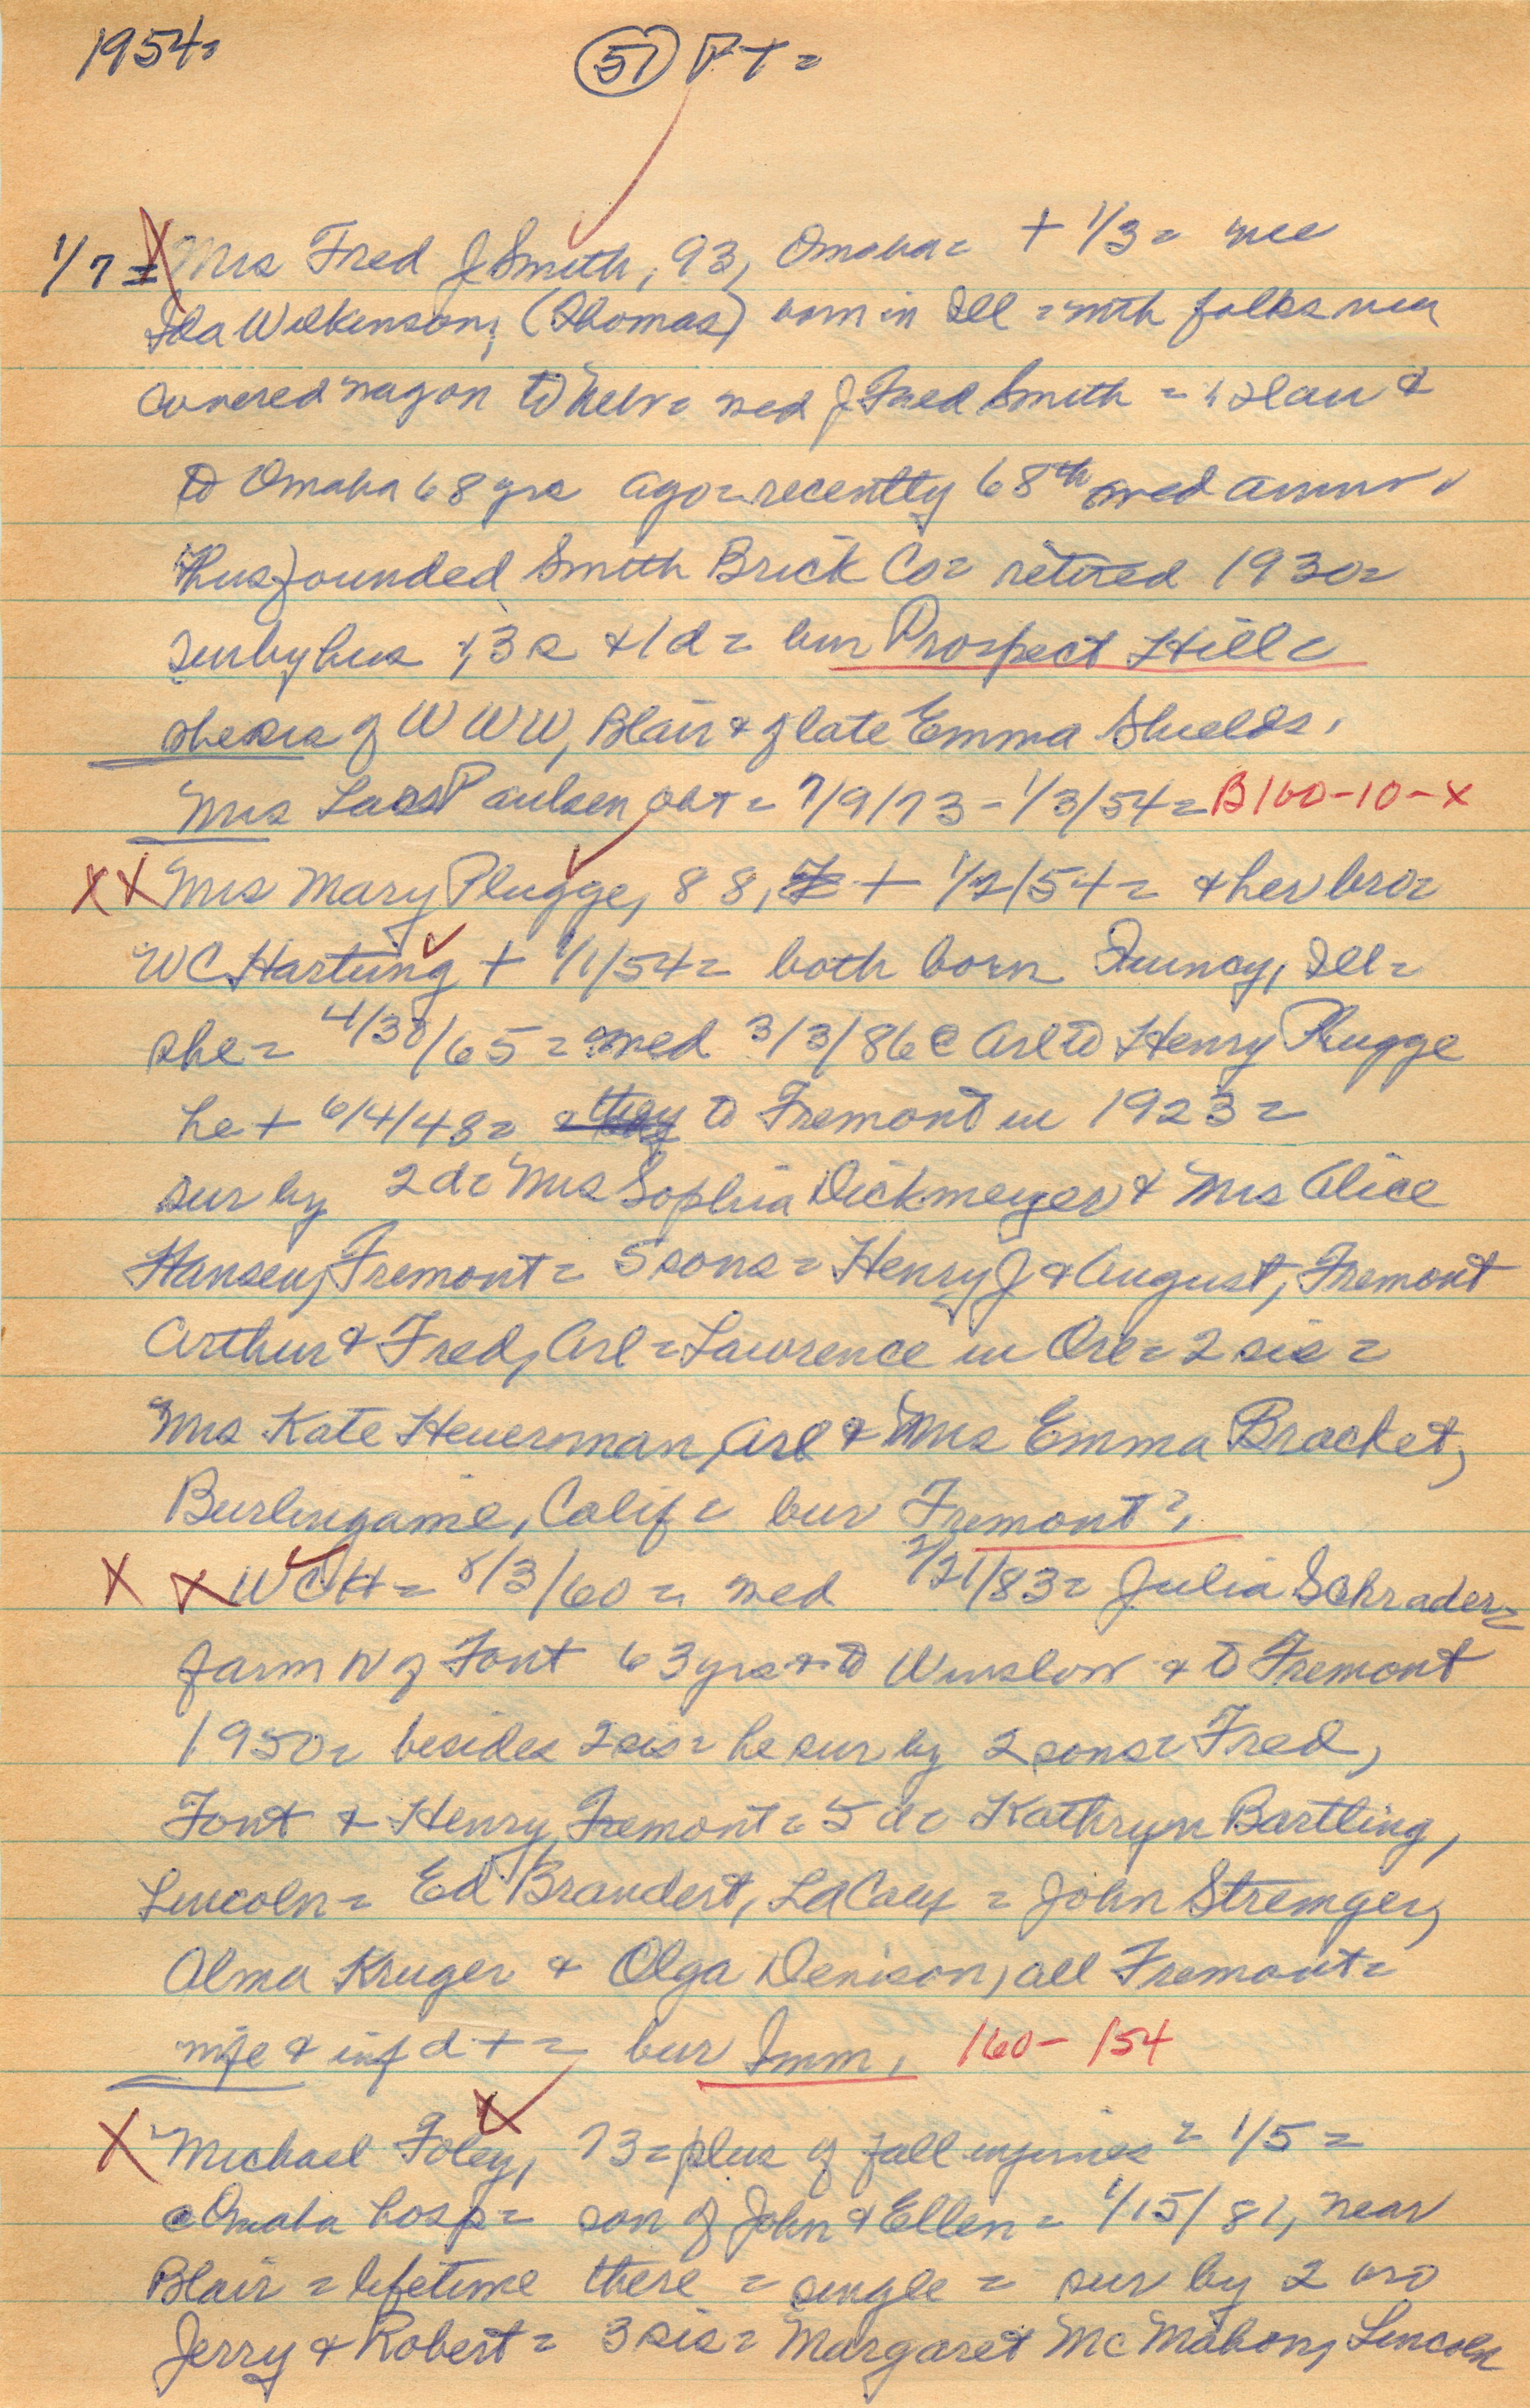 1954=
57 PT=
1/7 = Mrs Fred J Smith, 93, Omaha= + 1/3= nee
Ida Wilkinson, (Thomas) born in Ill = with folks via
covered wagon to Nebr= wed J Fred Smith = Blair &
to Omaha 68 yrs ago= recently 68th wed anniv.
Hus founded Smith Brick Co= retired 1930=
sur by hus & 3 s & 1 d = bur Prospect Hill=
she sis of W WW, Blair & of late Emma Shields.
Mrs Lars Paulsen obt = 7/9/73 - 1/3/54= B160-10-x
XX Mrs Mary Plugge, 88, + 1/2/54= & her bro=
WC Hartung + 1/1/54= both born Quincy, Ill=
she= 4/30/65= wed 3/3/86 @ Arl to Henry Plugge
he + 6/4/48= & they to Fremont in 1923=
sur by 2 d= Mrs Sophia Dickmeyer & Mrs Alice
Hansen, Fremont= 5 sons= Henry J & August, Fremont
Arthur & Fred, Arl= Lawrence in Ore= 2 sis=
Mrs Kate Heuerman, Arl & Mrs Emma Bracket,
Burlingame, Calif= bur Fremont?,
X X WCH= 8/3/60= wed 2/21/83= Julia Schrader=
farm N of Font 63 yrs & to Winslow & to Fremont
1950= besides 2 sis= he sur by 2 sons= Fred,
Font & Henry, Fremont= 5 d= Kathryn Bartling,
Lincoln= Ed Brandert, = John Stremger,
Alma Kruger & Olga Denison, all Fremont=
wife & inf d += bur Imm, 160-154
X Michael Foley, 73= plus of fall injuries= 1/5=
@ Omaha hosp= son of John & Ellen= 1/15/81, near
Blair= lifetime there= single= sur by 2 bro
Jerry & Robert= 3 sis= Margaret McMahon, Lincoln